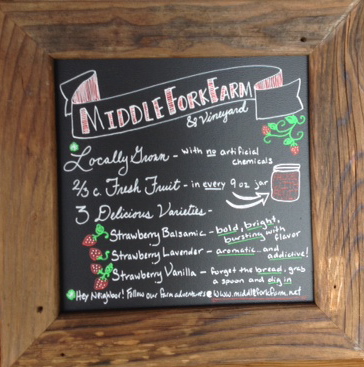 Middle Fork Farm
& Vineyard
Locally Grown - with no artificial
chemicals
2/3 c. Fresh Fruit - in every 9 oz jar
3 Delicious Varieties -
Strawberry Balsamic - bold, bright,
bursting with
flavor
Strawberry Lavender - aromatic and
addictive!
Strawberry Vanilla - forget the bread, grab
a spoon and dig in
Hey Neighbor! Follow our farm adventures @ www.middleforkfarm.net